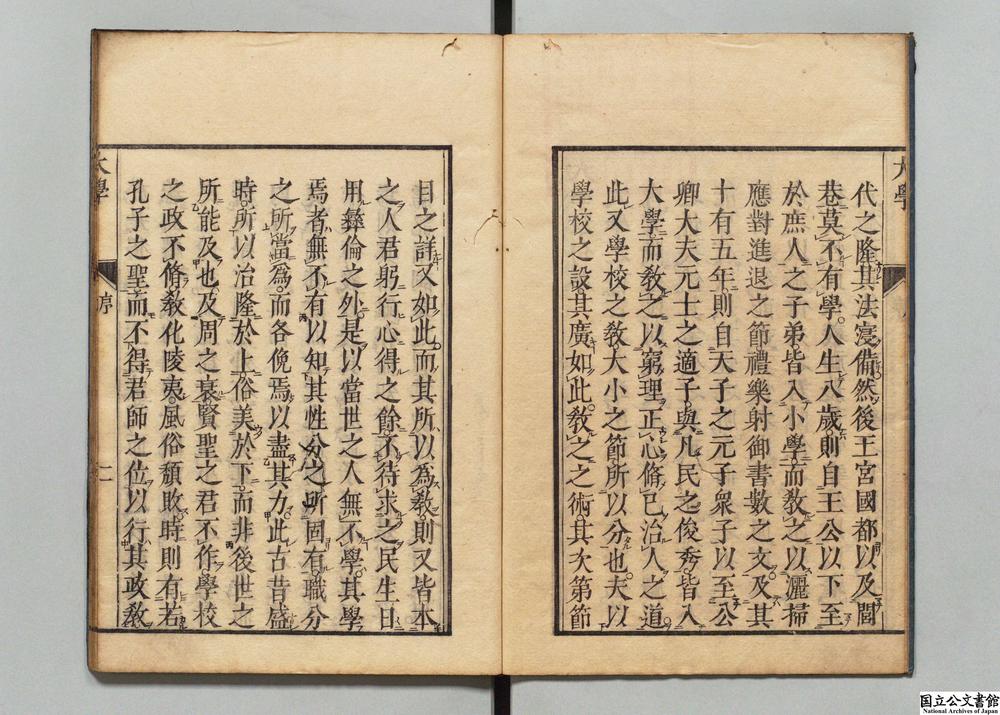 代之隆其法寖備然後王宮國都以及閭
巷莫不有學人生八歲則自王公以下至
於庶人之子弟皆入小學而教之以灑掃
應對進退之節禮樂射御書數之文及其
十有五年則自天子之元子衆子以至公
卿大夫元士之適子與凡民之俊秀皆入
大學而敎之以窮理正心脩己治人之道
此又學校之敎大小之節所以分也夫以
學校之設其廣如此敎之之術其次第節
目之詳又如此而其所以為敎則又皆本
之人君躬行心得之餘不待求之民生日
用彝倫之外是以當世之人無不學其學
焉者無不有以知其性分之所固有職分
之所當為而各俛焉以盡其力此古昔盛
時所以治隆於上俗美於下而非後世之
所能及也及周之衰賢聖之君不作學校
之政不脩敎化陵夷風俗頽敗時則有若
孔子之聖而不得君師之位以行其政敎
大學
序
二
国立公文書館
National Archives of Japan